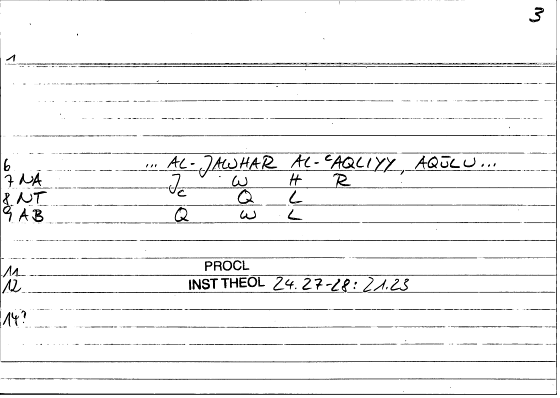 3
1
6 ... AL-JAWHAR AL-ʿAQLIYY, AQŪLU...
7 NA J W H R
8 NT ʿ Q L
9 AB Q W L
11 PROCL
12 INST THEOL 24.27-28: 21.23
14?